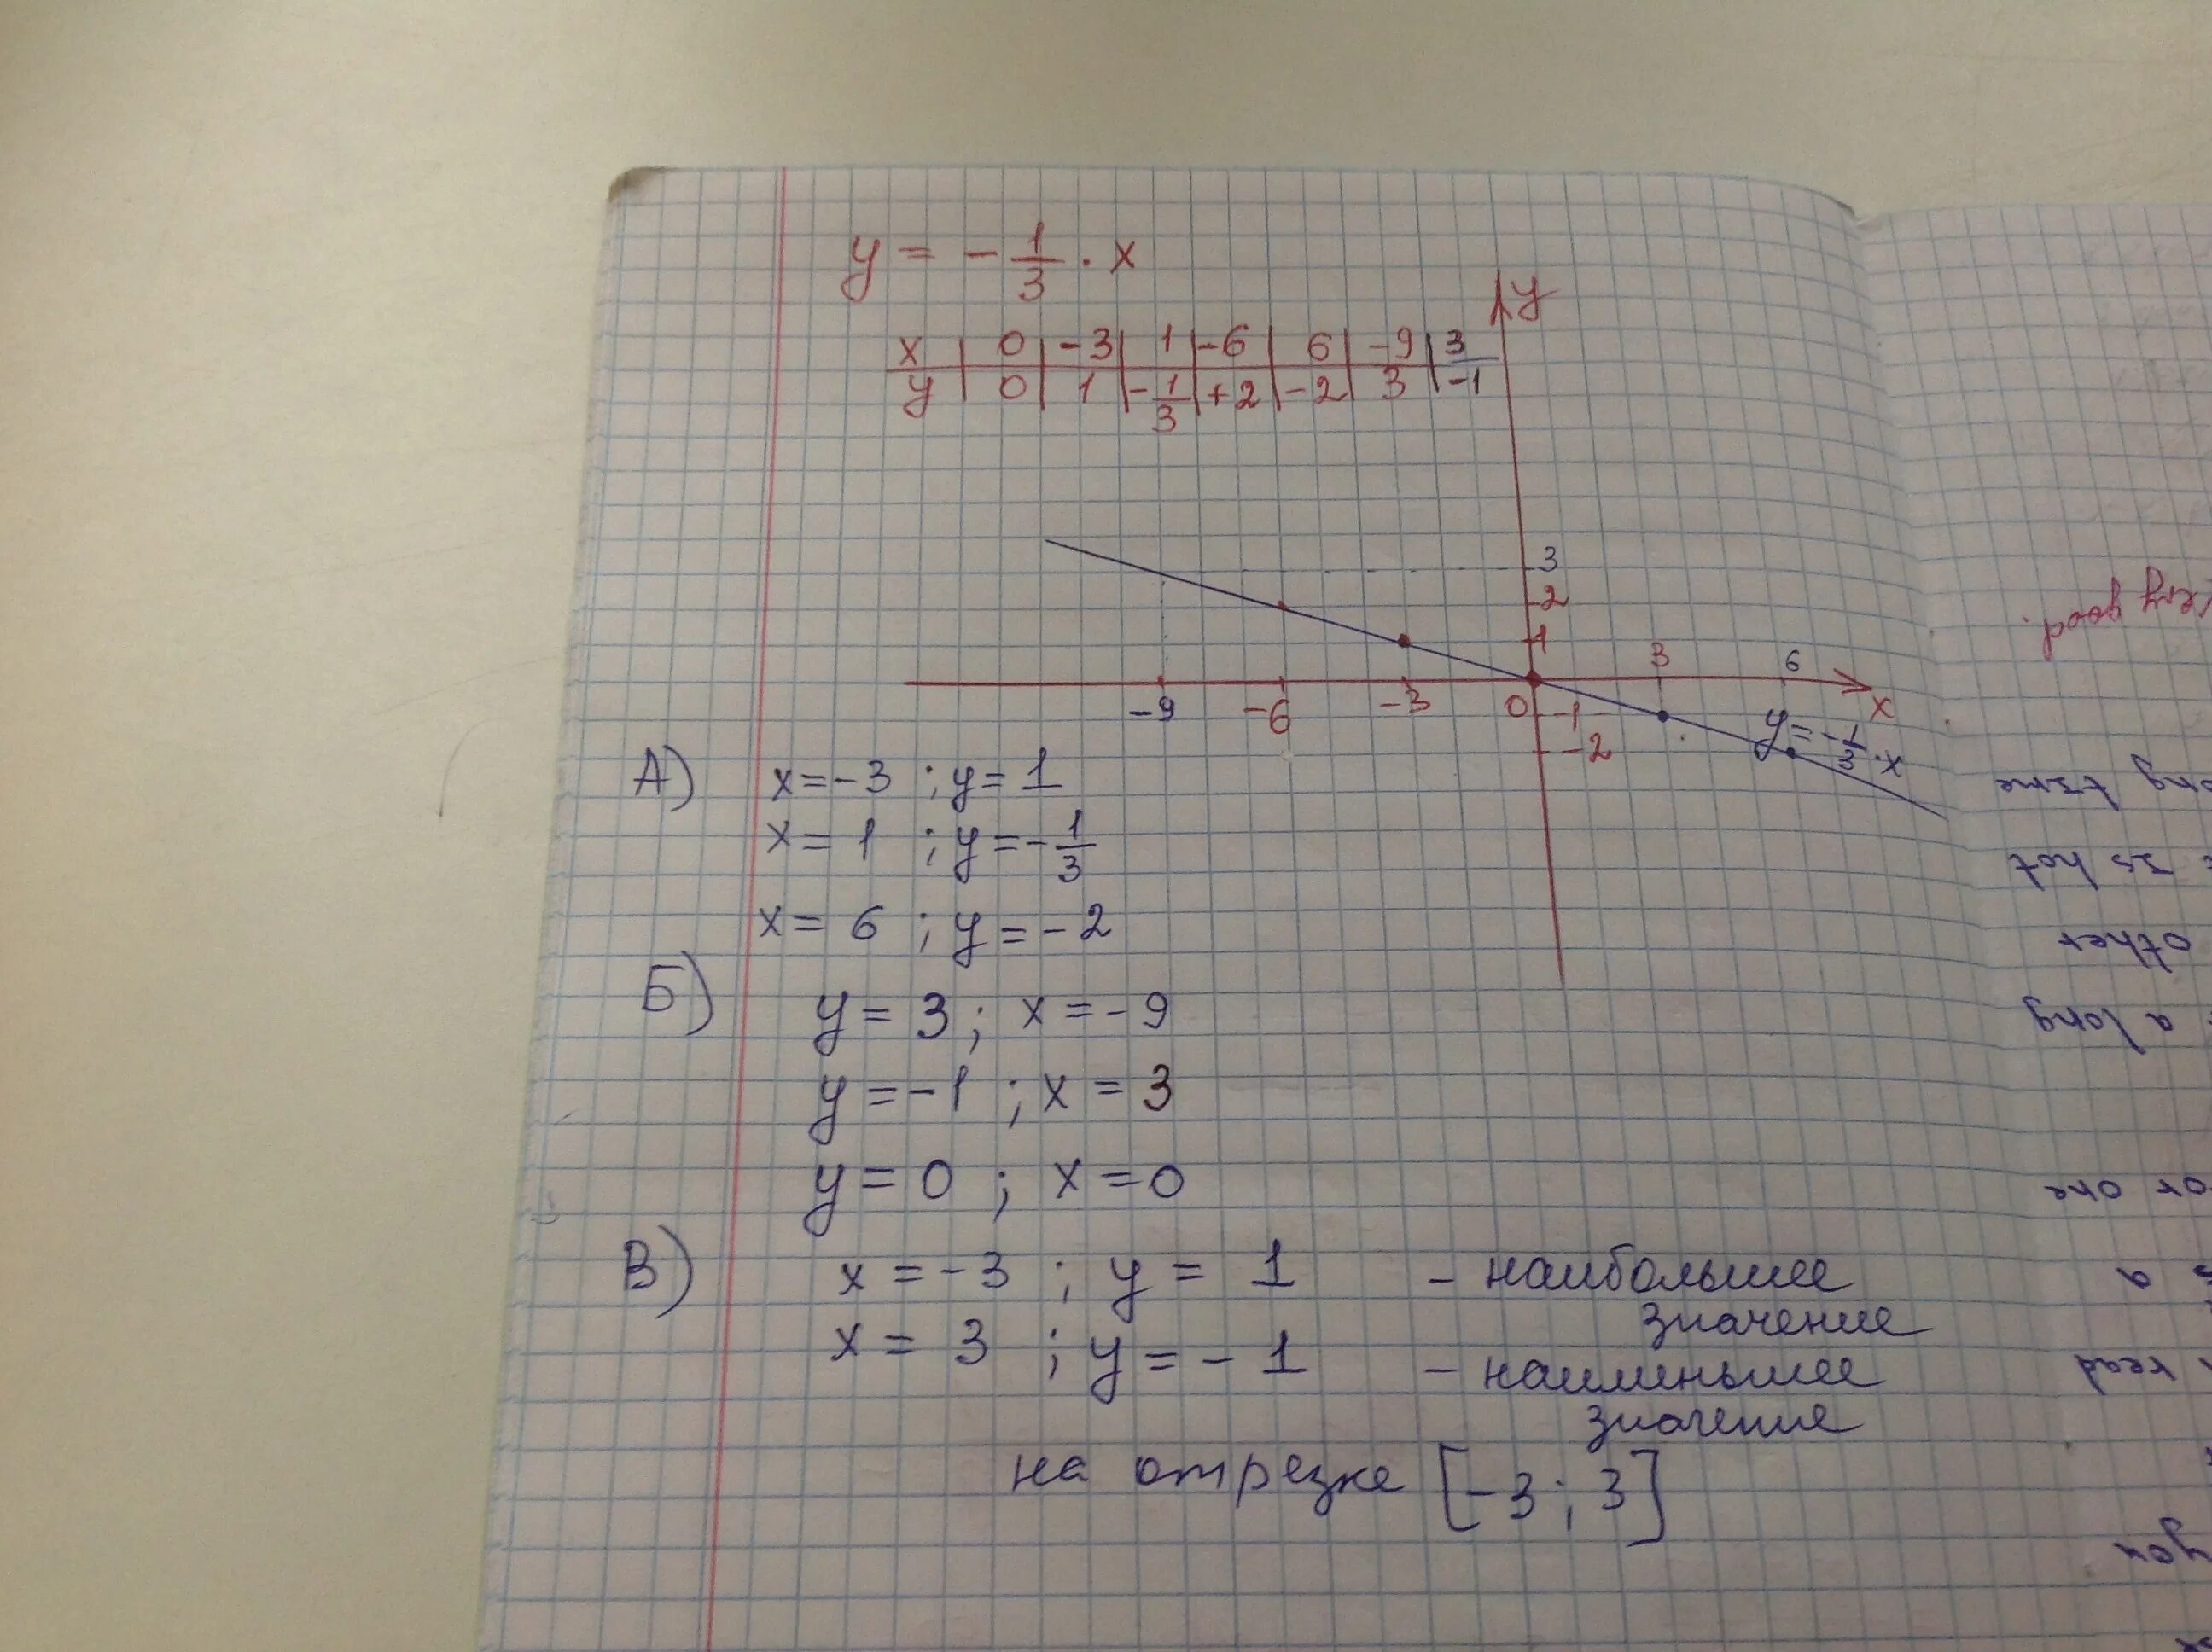 y = - 1/3 · x
x | 0 | -3 | 1 | -6 | 6 | -9 | 3
y | 0 | 1 | -1/3 | +2 | -2 | 3 | -1
y
3
2
1
3 6
-9 -6 -3 0 x
-1
-2
y = - 1/3 · x
А) x = -3 ; y = 1
x = 1 ; y = - 1/3
x = 6 ; y = -2
Б) y = 3 ; x = -9
y = -1 ; x = 3
y = 0 ; x = 0
В) x = -3 ; y = 1 - наибольшее
значение
x = 3 ; y = -1 - наименьшее
значение
на отрезке [-3 ; 3]
good.
time
hot
other
a long
or one
a
read
you